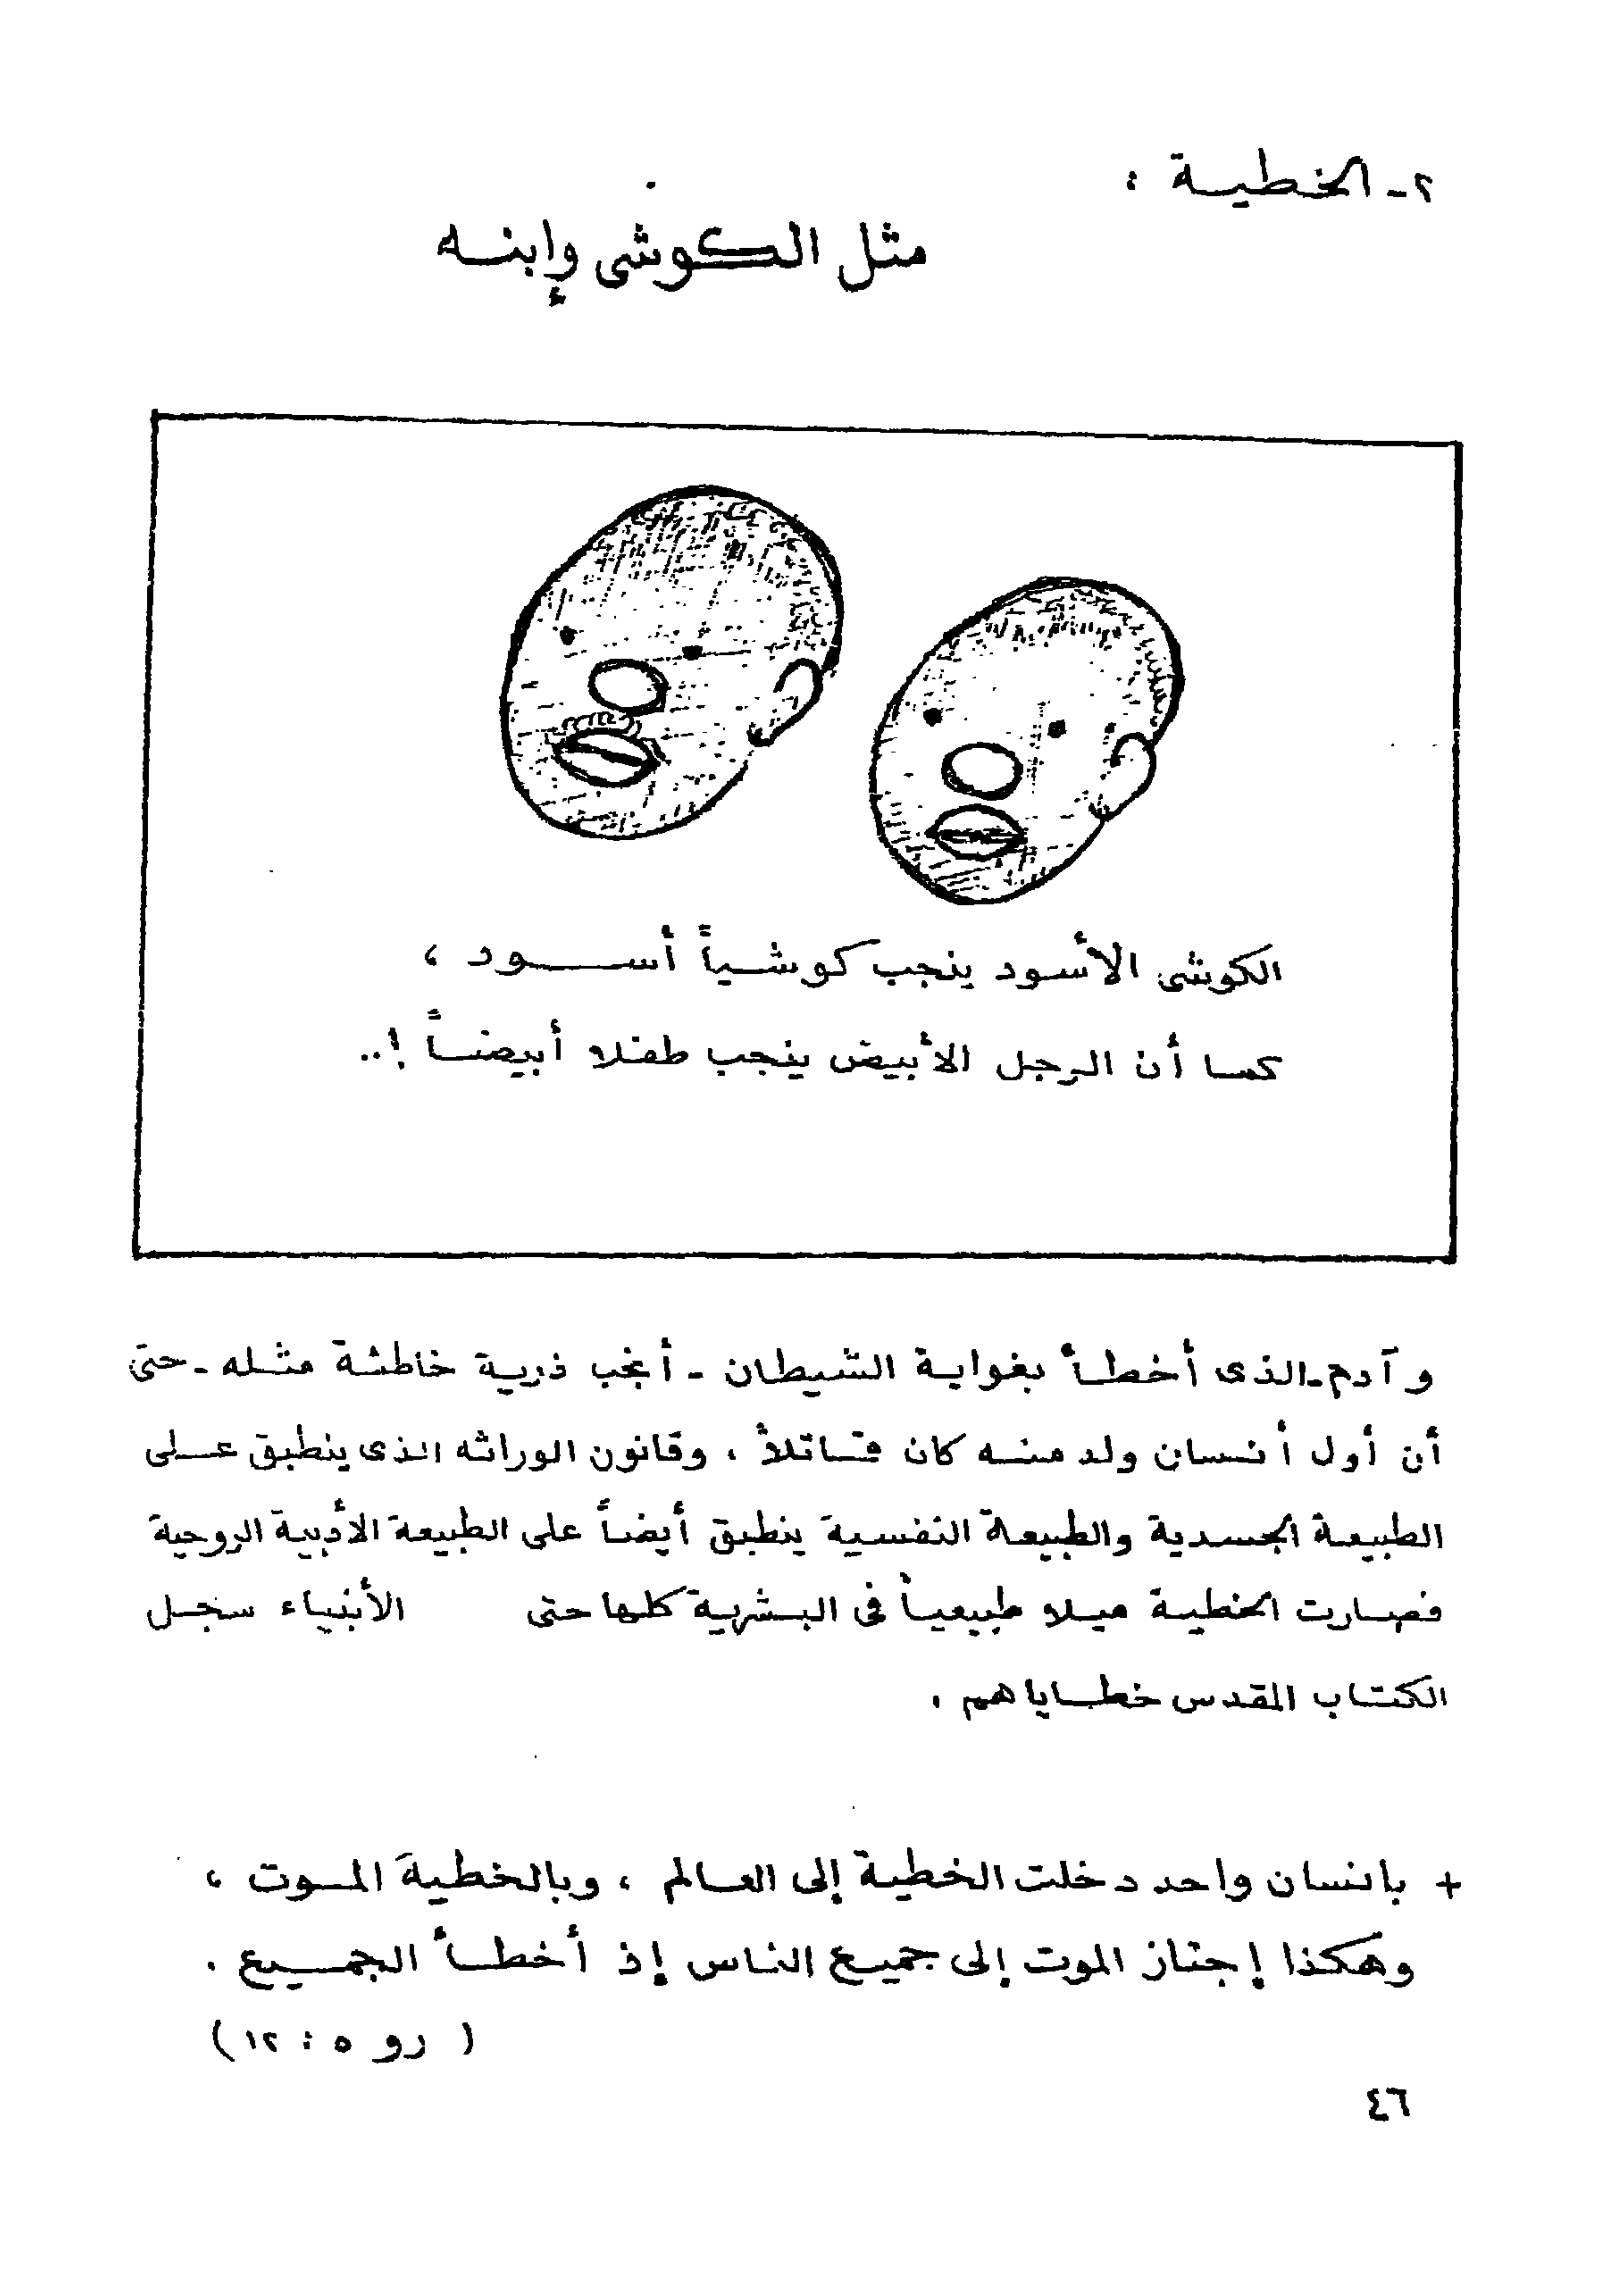 ٢ـ الخطية :
مثل الكوشى وإبنه
الكوشى الأسود ينجب كوشياً أسود ،
كما أن الرجل الأبيض ينجب طفلا أبيضاً !..
و آدم ـ الذى أخطأ بغواية الشيطان ـ أنجب ذرية خاطئة مثله ـ حتى
أن أول أنسان ولد منه كان قاتلاً ، وقانون الوراثه الذى ينطبق على
الطبيعة الجسدية والطبيعة النفسية ينطبق أيضاً على الطبيعة الأدبية الروحية
فصارت الخطية ميلا طبيعياً فى البشرية كلها حتى الأنبياء سجل
الكتاب المقدس خطاياهم .
+ بانسان واحد دخلت الخطية إلى العالم ، وبالخطية الموت ،
وهكذا إجتاز الموت إلى جميع الناس إذ أخطأ الجميع .
( رو ٥ : ١٢ )
٤٦